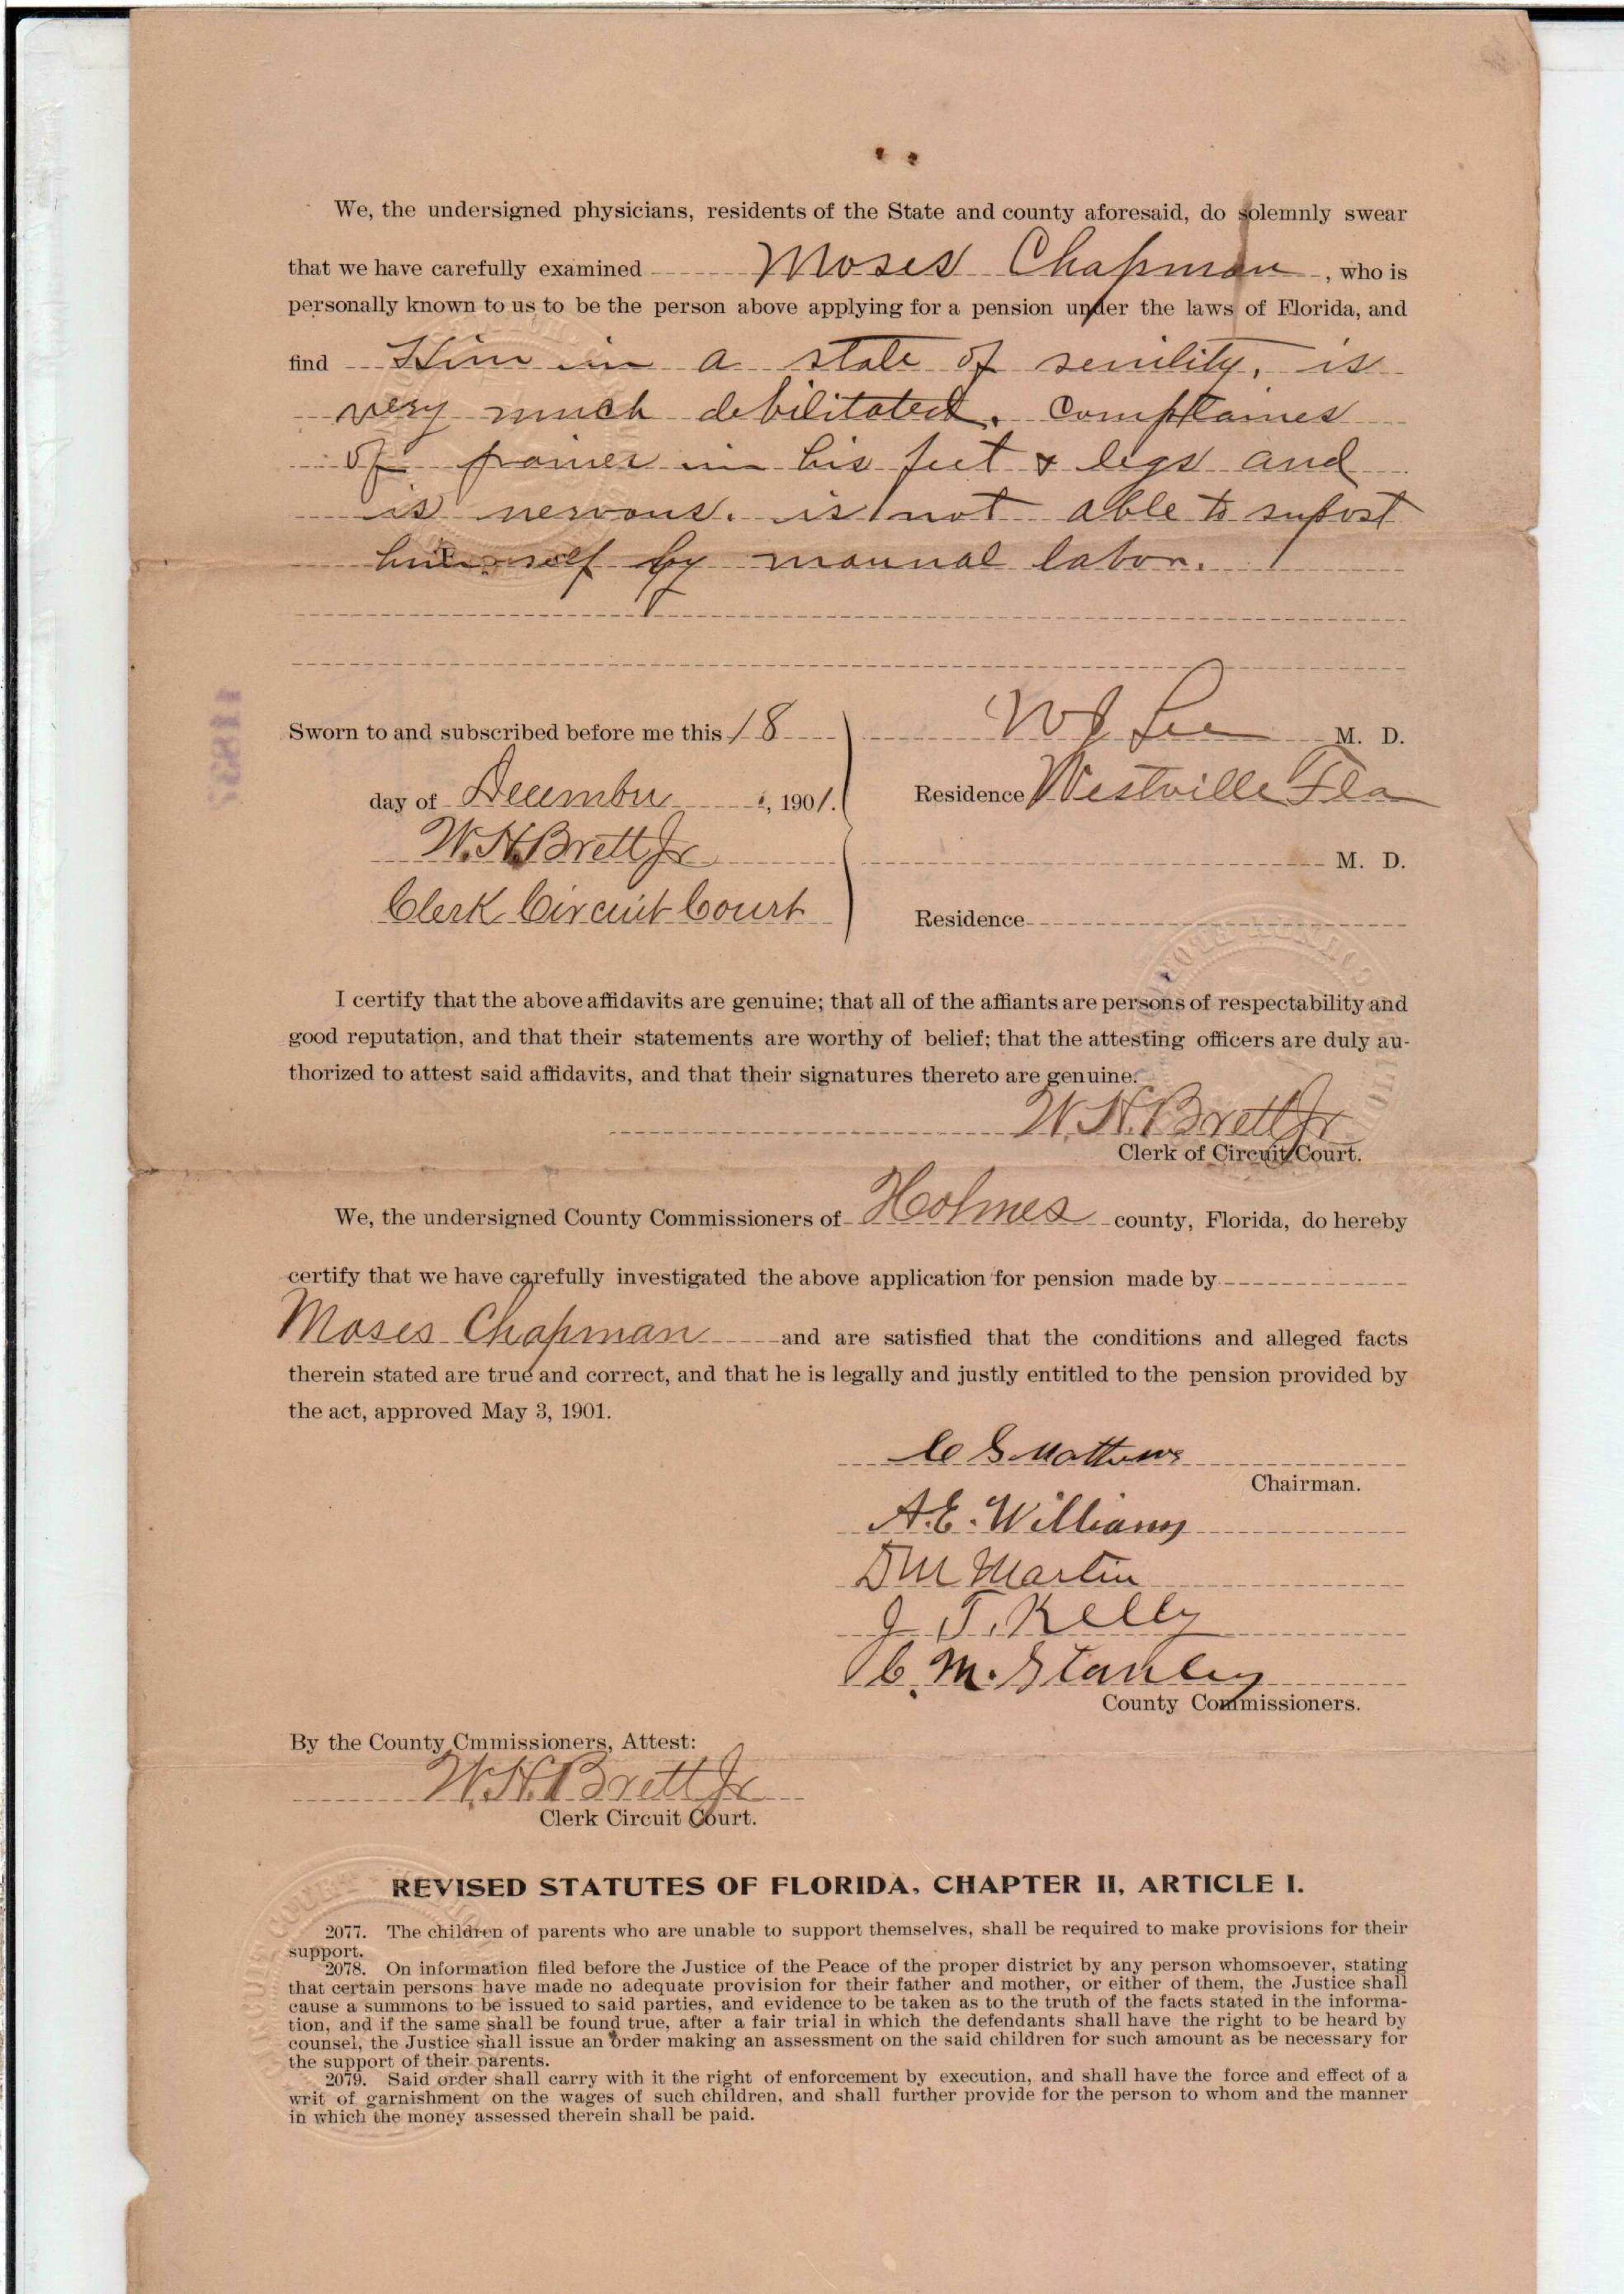 We, the undersigned physicians, residents of the State and county aforesaid, do solemnly swear
that we have carefully examined Moses Chapman, who is
personally known to us to be the person above applying for a pension under the laws of Florida, and
find Him in a state of senility, is
very much debilitated. complaines
of paines in his feet & legs and
is nervous. is not able to suport
himself by mannal labor.
Sworn to and subscribed before me this 18
W J Lee M. D.
day of December, 1901.
Residence Westville Fla
W. H. Brett Jr
M. D.
Clerk Circuit Court
Residence
I certify that the above affidavits are genuine; that all of the affiants are persons of respectability and
good reputation, and that their statements are worthy of belief; that the attesting officers are duly au-
thorized to attest said affidavits, and that their signatures thereto are genuine.
W. H. Brett Jr
Clerk of Circuit Court.
We, the undersigned County Commissioners of Holmes county, Florida, do hereby
certify that we have carefully investigated the above application for pension made by
Moses Chapman and are satisfied that the conditions and alleged facts
therein stated are true and correct, and that he is legally and justly entitled to the pension provided by
the act, approved May 3, 1901.
C S Mathews
Chairman.
A. E. Williams
D M Martin
J T. Kelly
C. M. Stanley
County Commissioners.
By the County Cmmissioners, Attest:
W. H. Brett Jr
Clerk Circuit Court.
REVISED STATUTES OF FLORIDA, CHAPTER II, ARTICLE I.
2077. The children of parents who are unable to support themselves, shall be required to make provisions for their
support.
2078. On information filed before the Justice of the Peace of the proper district by any person whomsoever, stating
that certain persons have made no adequate provision for their father and mother, or either of them, the Justice shall
cause a summons to be issued to said parties, and evidence to be taken as to the truth of the facts stated in the informa-
tion, and if the same shall be found true, after a fair trial in which the defendants shall have the right to be heard by
counsel, the Justice shall issue an order making an assessment on the said children for such amount as be necessary for
the support of their parents.
2079. Said order shall carry with it the right of enforcement by execution, and shall have the force and effect of a
writ of garnishment on the wages of such children, and shall further provide for the person to whom and the manner
in which the money assessed therein shall be paid.